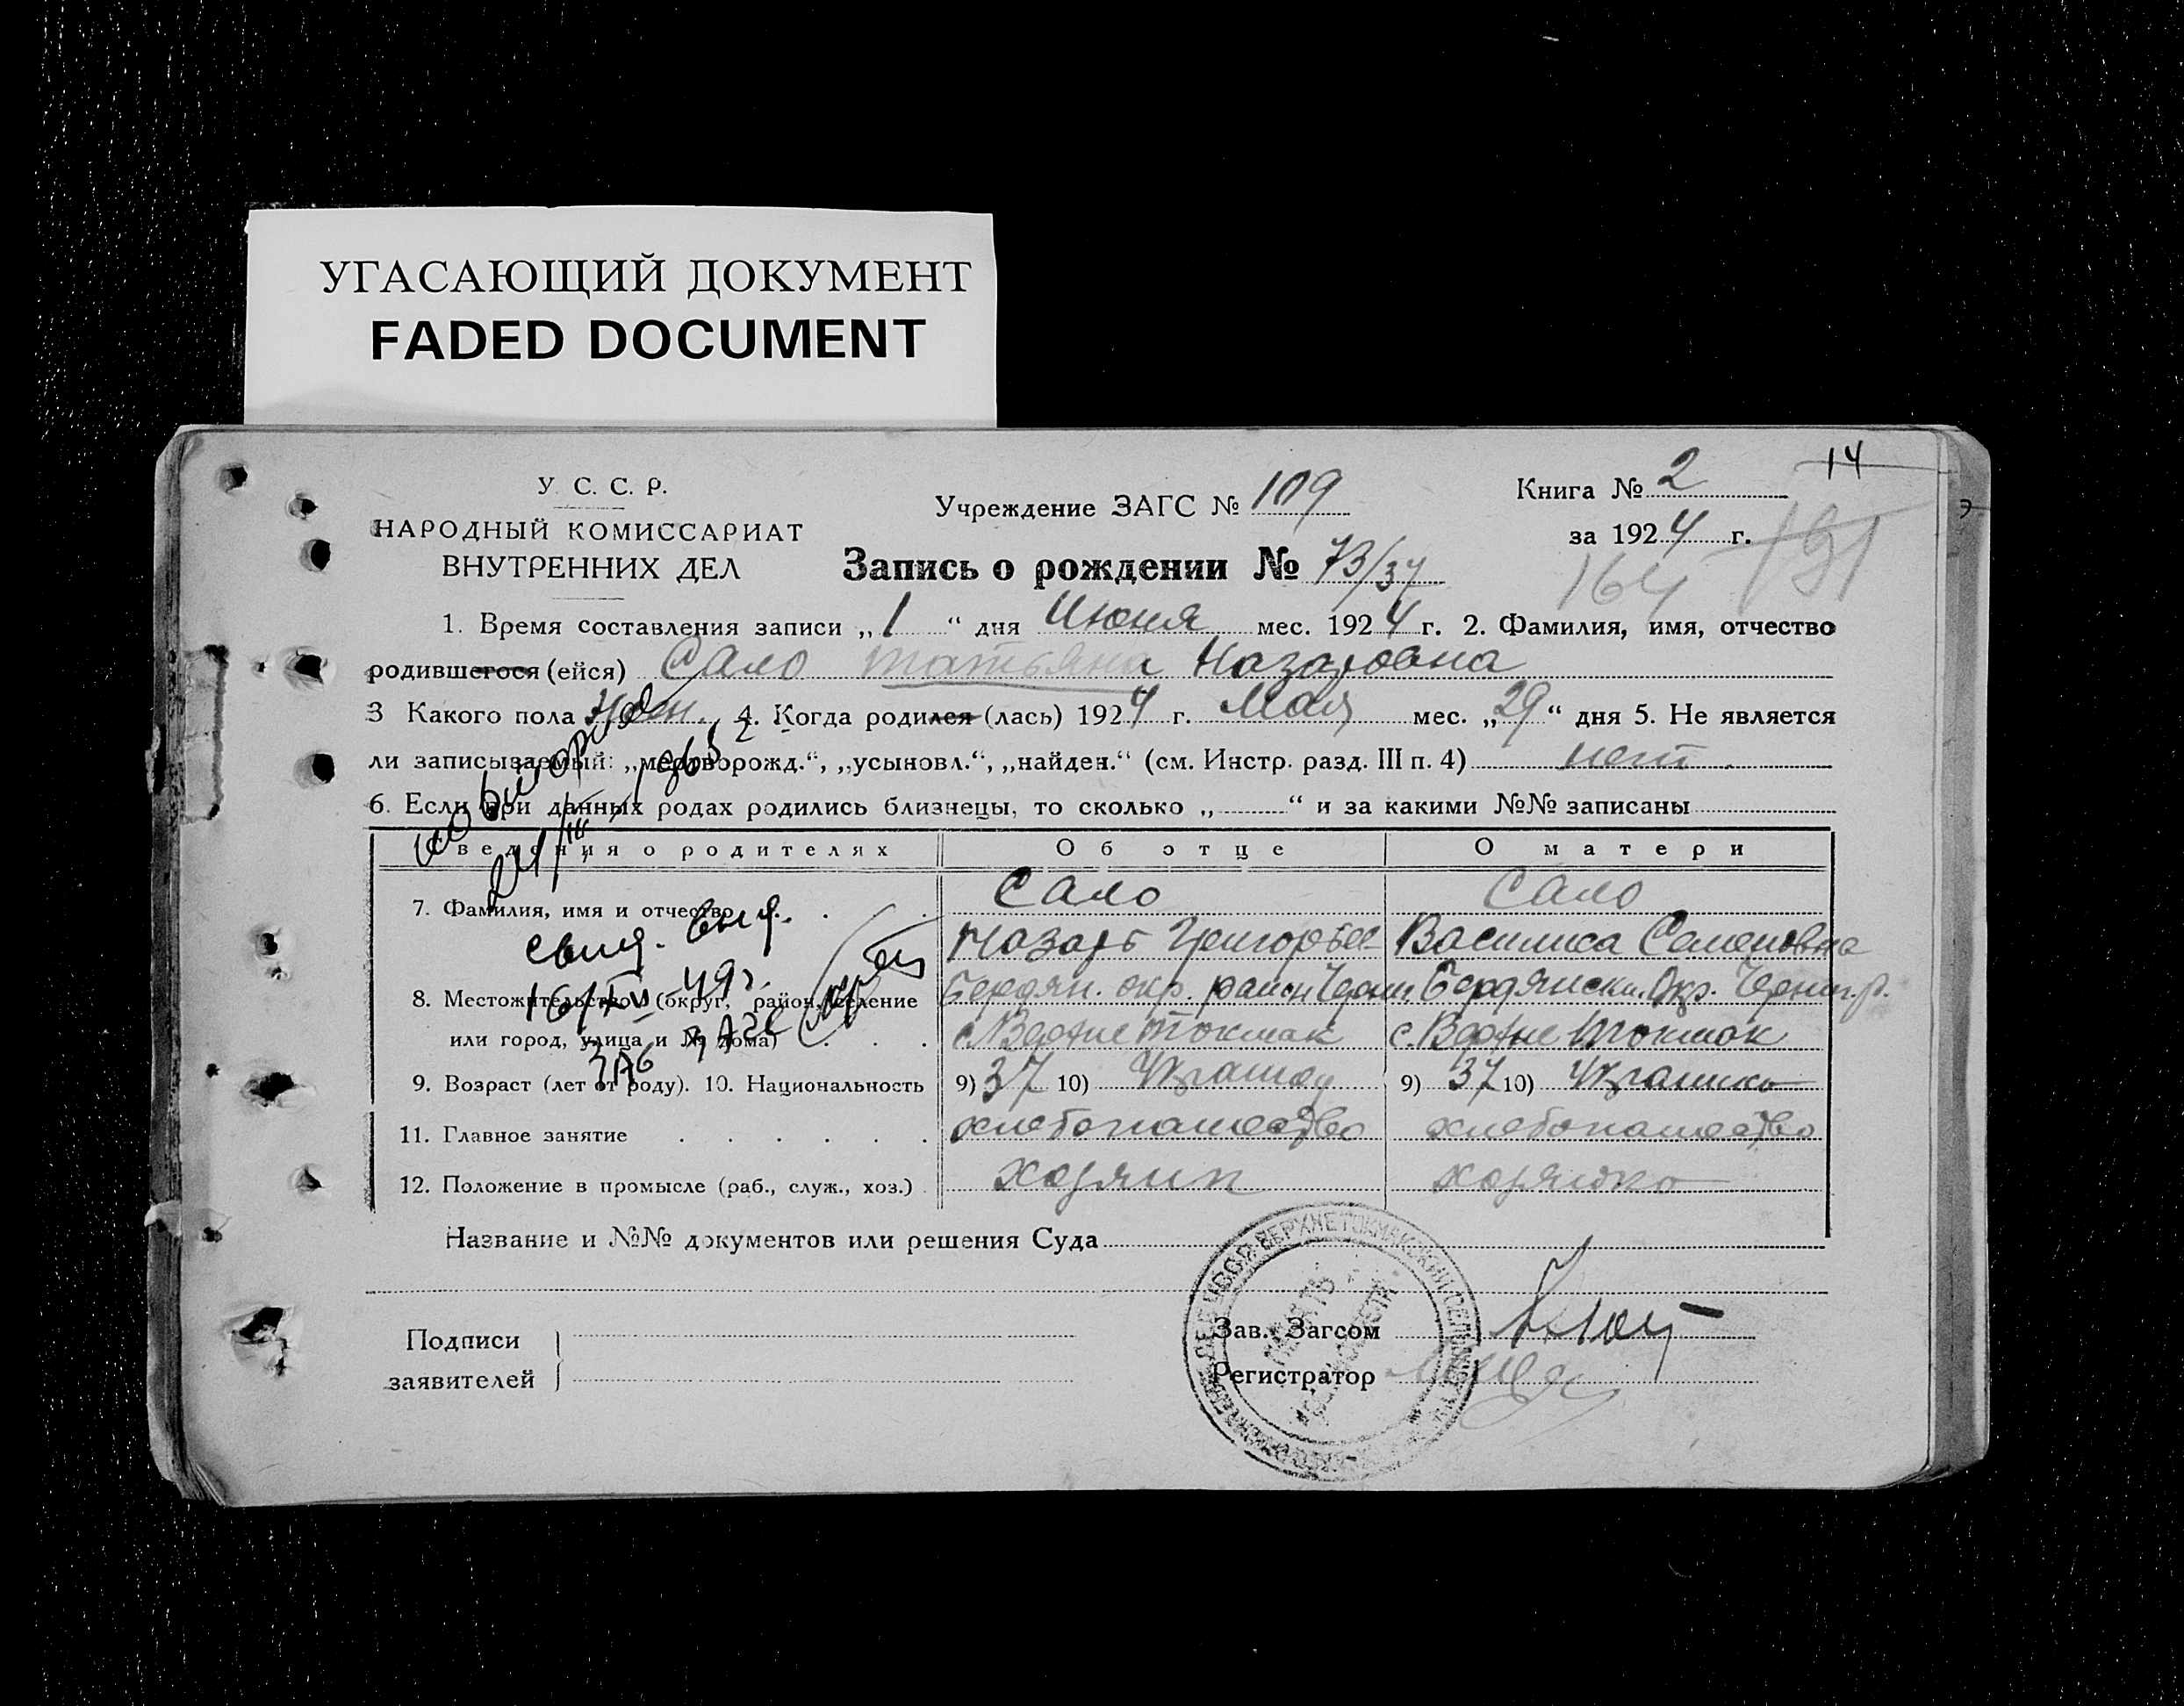 УГАСАЮЩИЙ ДОКУМЕНТ
FADED DOCUMENT
14
У. С. С. Р.
НАРОДНЫЙ КОМИССАРИАТ
ВНУТРЕННИХ ДЕЛ
Учреждение ЗАГС № 109
Книга № 2
за 1924 г.
164 191
Запись о рождении № 73/37
1. Время составления записи „1“ дня Июня мес. 1924 г. 2. Фамилия, имя, отчество
родившегося (ейся) Сало Татьяна Назаровна
3 Какого пола жен. 4. Когда родился (лась) 1924 г. Мая мес. „29“ дня 5. Не является
ли записываемый: „мертворожд.“, „усыновл.“, „найден.“ (см. Инстр. разд. III п. 4) нет
6. Если при данных родах родились близнецы, то сколько „ “ и за какими №№ записаны
Сведения о родителях Об отце О матери
7. Фамилия, имя и отчество Сало Сало
Назарь Григорьев Василиса Семеновна
8. Местожительство (округ, район, селение Бердян. окр. район Черни. Бердянск. Окр. Черниг. р.
или город, улица и № дома) с. Верхне Токмак с. Верхне Токмак
9. Возраст (лет от роду). 10. Национальность 9) 37 10) 9) 37 10) Украинка
11. Главное занятие хлебопашество хлебопашество
12. Положение в промысле (раб., служ., хоз.) хозяин хозяйка
свид. выд.
16/IV-49 г.
ЗАГС
Название и №№ документов или решения Суда
Подписи
заявителей
Зав. Загсом
Регистратор